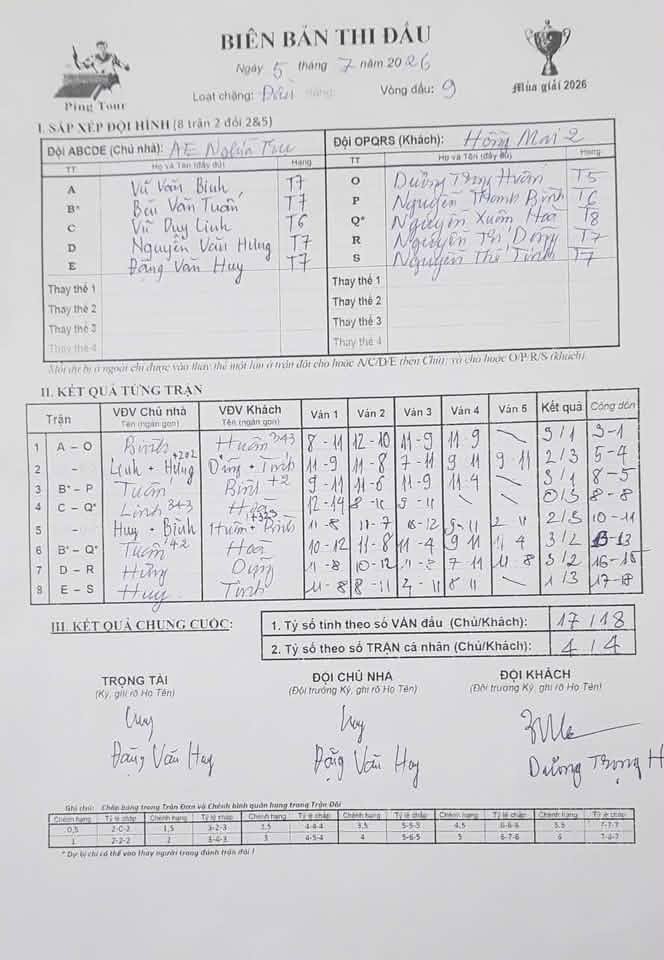 BIÊN BẢN THI ĐẤU
Ngày 5 tháng 7 năm 2026
Ping Tour
Loạt chặng: Vòng đấu: 9
Mùa giải 2026
I. SẮP XẾP ĐỘI HÌNH (8 trận 2 đôi 2&5)
Đội ABCDE (Chủ nhà): AE Nghĩa Trụ
Đội OPQRS (Khách): Hồng Mai 2
TT Họ và Tên (đầy đủ) Hạng
TT Họ và Tên (đầy đủ) Hạng
A Vũ Văn Bình T7
B* Bùi Văn Tuấn T7
C Vũ Duy Linh T6
D Nguyễn Văn Hưng T7
E Đặng Văn Huy T7
O Dương Trọng Huấn T5
P Nguyễn Thanh Bình T6
Q* Nguyễn Xuân Hoà T8
R Nguyễn Trí Dũng T7
S Nguyễn Thế Tính T7
Thay thế 1
Thay thế 2
Thay thế 3
Thay thế 4
Thay thế 1
Thay thế 2
Thay thế 3
Thay thế 4
Mỗi dự bị ở ngoài chỉ được vào thay thế một lần ở trận đơn cho hoặc A/C/D/E (bên Chủ); và cho hoặc O/P/R/S (khách).
II. KẾT QUẢ TỪNG TRẬN
Trận VĐV Chủ nhà Tên (ngắn gọn) VĐV Khách Tên (ngắn gọn) Ván 1 Ván 2 Ván 3 Ván 4 Ván 5 Kết quả Cộng dồn
1 A – O Bình Huấn 343 8 - 11 12 - 10 11 - 9 11 - 9 3/1 3-1
2 - Linh + Hưng +202 Dũng + Tính 11 - 9 11 - 8 7 - 11 9 11 9 - 11 2/3 5-4
3 B* – P Tuấn Bình +2 9 - 11 11 - 6 11 - 9 11 - 4 3/1 8-5
4 C – Q* Linh 343 Hoà 12-14 8 - 11 9 - 11 0/3 8-8
5 - Huy + Bình Huấn + Bình +323 11 - 8 10-12 9 - 11 2 11 2/3 10-11
6 B* – Q* Tuấn +2 Hoà 10 - 12 11 - 8 11 - 4 9 11 11 4 3/2 13-13
7 D – R Hưng Dũng 11 - 8 10 - 12 11 - 8 7 - 11 11 8 3/2 16-15
8 E – S Huy Tính 11 - 8 8 - 11 8 11 1/3 17-18
III. KẾT QUẢ CHUNG CUỘC:
1. Tỷ số tính theo số VÁN đấu (Chủ/Khách): 17 / 18
2. Tỷ số theo số TRẬN cá nhân (Chủ/Khách): 4 / 4
TRỌNG TÀI
(Ký, ghi rõ Họ Tên)
ĐỘI CHỦ NHÀ
(Đội trưởng Ký, ghi rõ Họ Tên)
ĐỘI KHÁCH
(Đội trưởng Ký, ghi rõ Họ Tên)
Huy
Huy
Đặng Văn Huy
Đặng Văn Huy
Dương Trọng H
Ghi chú: Chấp bóng trong Trận Đơn và Chênh bình quân hạng trong Trận Đôi
Chênh hạng Tỷ lệ chấp Chênh hạng Tỷ lệ chấp Chênh hạng Tỷ lệ chấp Chênh hạng Tỷ lệ chấp Chênh hạng Tỷ lệ chấp Chênh hạng Tỷ lệ chấp
0,5 2-0-2 1,5 3-2-3 2,5 4-4-4 3,5 5-5-5 4,5 6-6-6 5,5 7-7-7
1 2-2-2 2 3-4-3 3 4-5-4 4 5-6-5 5 6-7-6 6 7-8-7
* Dự bị chỉ có thể vào thay người trong đánh trận đôi !